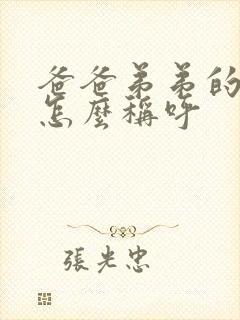 爸爸弟弟的
怎麼稱呼
張光忠